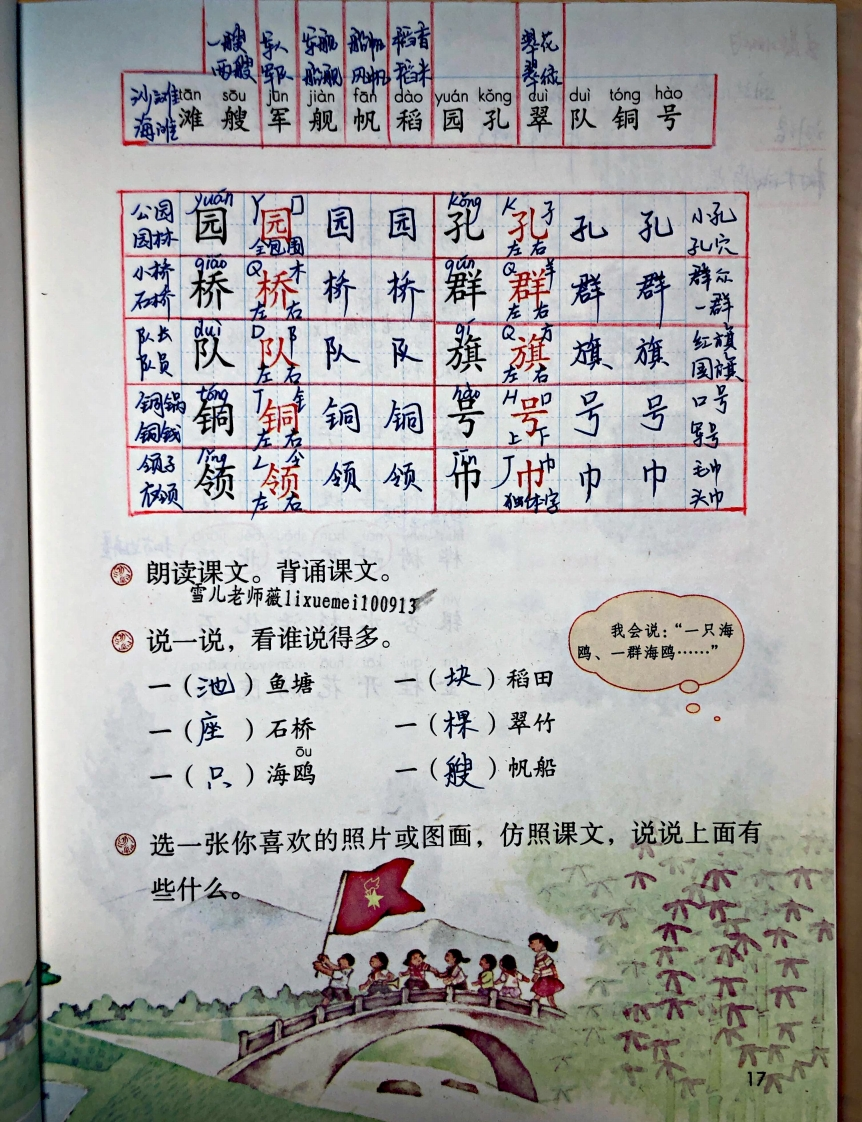 一艘 军人 军舰 船帆 稻香 翠花
两艘 军队 船舰 风帆 稻米 翠绿
沙滩
海滩
tān sōu jūn jiàn fān dào yuán kǒng cuì duì tóng hào
滩 艘 军 舰 帆 稻 园 孔 翠 队 铜 号
yuán Y 囗 kǒng K 子
公园 园 园 园 园 孔 孔 孔 孔 小孔
园林 全包围 左右 孔穴
qiáo Q 木 qún Q 羊
小桥 桥 桥 桥 桥 群 群 群 群
石桥 左右 左右 一群
duì D 阝 qí Q 方
队长 队 队 队 队 旗 旗 旗 旗 红旗
队员 左右 左右 国旗
tóng T hào H 口
铜锅 铜 铜 铜 铜 号 号 号 号 口号
铜钱 左右 上下
lǐng L 令 jīn J 巾
领子 领 领 领 领 巾 巾 巾 巾 毛巾
衣领 左右 独体字 头巾
朗读课文。背诵课文。
雪儿老师薇lixuemei100913
说一说，看谁说得多。
我会说：“一只海
鸥、一群海鸥……”
一（池）鱼塘 一（块）稻田
一（座）石桥 一（棵）翠竹
ōu
一（只）海鸥 一（艘）帆船
选一张你喜欢的照片或图画，仿照课文，说说上面有
些什么。
17